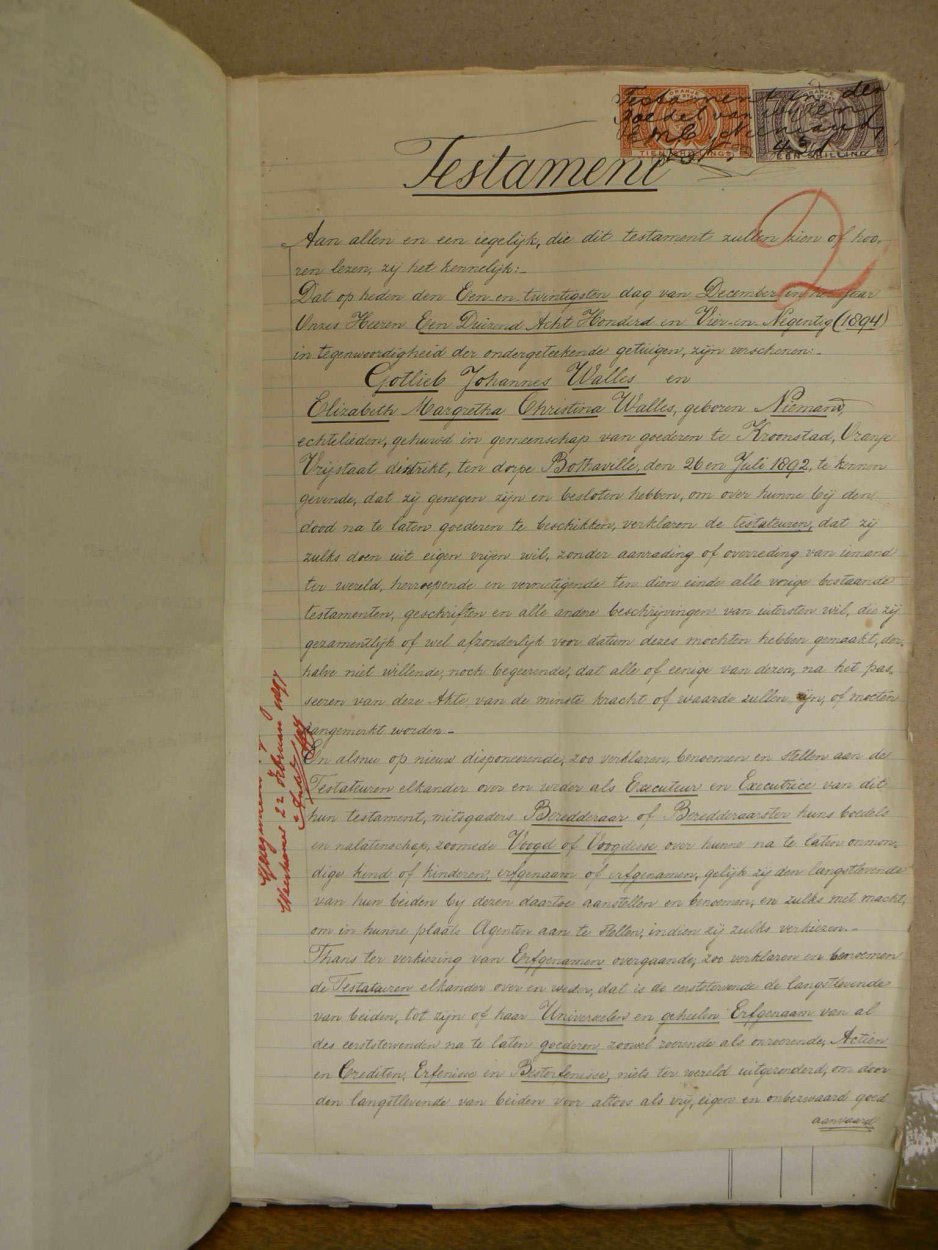 Testament in den
Boedel van wijlen
E M C Niemand
ORANJE
ORANJE
TIEN SHILLINGS
EEN SHILLING
Testament
2
Aan allen en een iegelijk, die dit testament zullen zien of hoo-
ren lezen, zij het kennelijk:-
Dat op heden den Een-en-twintigsten dag van December in het jaar
Onzes Heeren Een Duizend Acht Honderd en Vier-en-Negentig (1894)
in tegenwoordigheid der ondergeteekende getuigen, zijn verschenen:-
Gotlieb Johannes Walles en
Elizabeth Margretha Christina Walles, geboren Niemand,
echtelieden, gehuwd in gemeenschap van goederen te Kroonstad, Oranje
Vrijstaat distrikt, ten dorpe Bothaville, den 26en Juli 1892, te kennen
gevende, dat zij genegen zijn en besloten hebben, om over hunne bij den
dood na te laten goederen te beschikken, verklaren de testateuren, dat zij
zulks doen uit eigen vrijen wil, zonder aanrading of overreding van iemand
ter wereld, herroepende en vernietigende ten dien einde alle vorige bestaande
testamenten, geschriften en alle andere beschrijvingen van uitersten wil, die zij
gezamentlijk of wel afzonderlijk voor datum dezes mochten hebben gemaakt, der-
halve niet willende, noch begeerende, dat alle of eenige van deren, na het pas-
seeren van deze Akte, van de minste kracht of waarde zullen zijn, of moeten
aangemerkt worden.-
En alsnu op nieuw disponeerende, zoo verklaren, benoemen en stellen aan de
Testateuren elkander over en weder als Executeur en Executrice van dit
hun testament, mitsgaders Beredderaar of Beredderaarster huns boedels
en nalatenschap, zoomede Voogd of Voogdesse over hunne na te laten onmon-
dige kind of kinderen, erfgenaam of erfgenamen, gelijk zij den langstlevende
van hun beiden by dezen daartoe aanstellen en benoemen, en zulks met macht,
om in hunne plaats Agenten aan te stellen, indien zij zulks verkiezen.-
Thans ter verkiezing van Erfgenamen overgaande, zoo verklaren en benoemen
de Testaturen elkander over en weder, dat is de eerststervende de langstlevende
van beiden, tot zijn of haar Universelen en geheelen Erfgenaam van al
des eerststervenden na te laten goederen, zoowel roerende als onroerende, Actien
en Crediten, Erfenisse en Besterfenisse, niets ter wereld uitgezonderd, om door
den langstlevende van beiden voor altoos als vrij, eigen en onbezwaard goed
aanvaard
22 Februari 1897